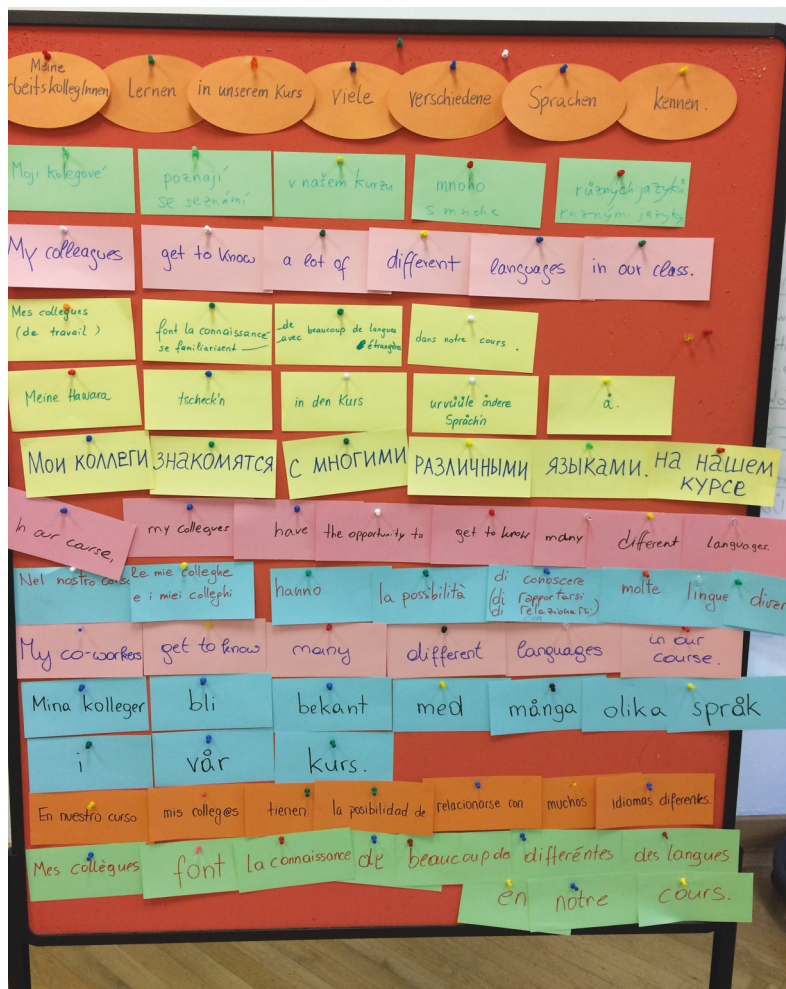 Meine
beitskollegInnen Lernen in unserem Kurs viele verschiedene Sprachen kennen.
Moji kolegové poznají v našem kurzu mnoho různých jazyků
se seznámí s mnoha různými jazyky
My colleagues get to know a lot of different languages in our class.
Mes collègues font la connaissance de beaucoup de langues dans notre cours.
(de travail) se familiarisent avec étrangères
Meine Hawara tscheck'n in den Kurs urvüüle åndere Språch'n å.
Мои коллеги знакомятся с многими различными языками. на нашем
курсе
n our course, my collegues have the opportunity to get to know many different languages.
Nel nostro corso le mie colleghe hanno la possibilità di conoscere molte lingue diver
e i miei colleghi (di rapportarsi
di relazionarsi)
con
My co-workers get to know many different languages in our
course.
Mina kolleger bli bekant med många olika språk
i vår kurs.
En nuestro curso mis colleg@s tienen la posibilidad de relacionarse con muchos idiomas diferentes.
Mes collègues font la connaissance de beaucoup des différéntes des langues
en notre cours.